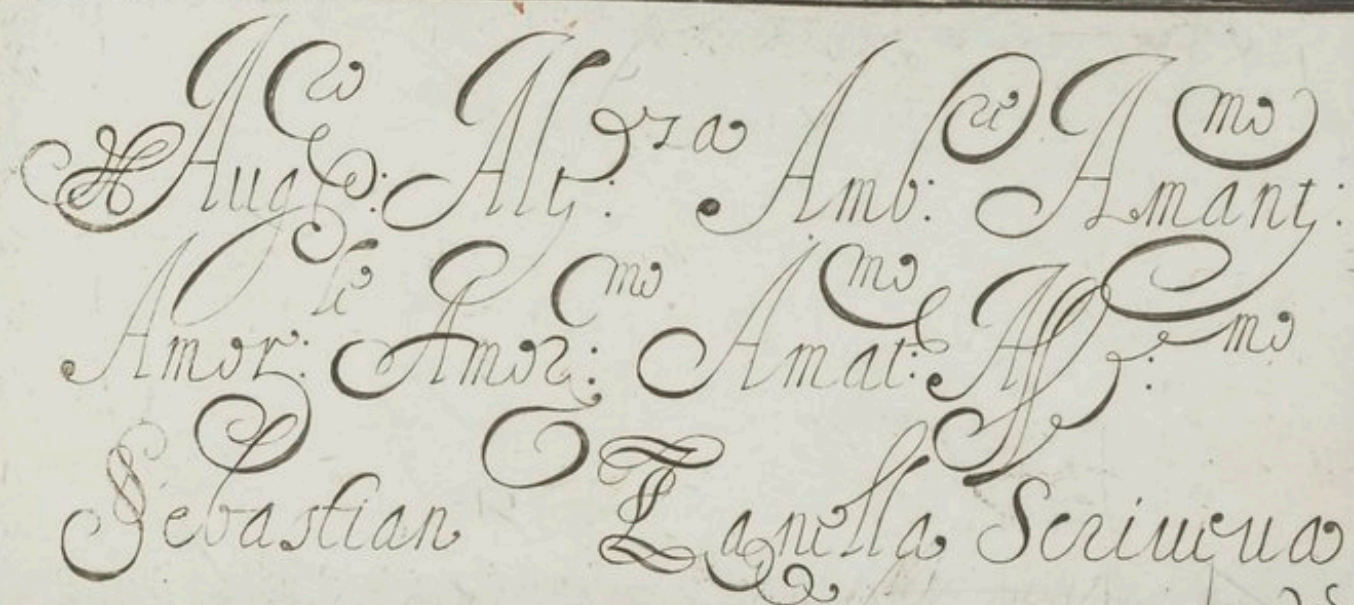 Aug^to: Alt^za: Amb^ri: Amant^mo:
Amor^le: Amor^mo: Amat^mo: Aff^mo:
Sebastian Zanella Scriueua